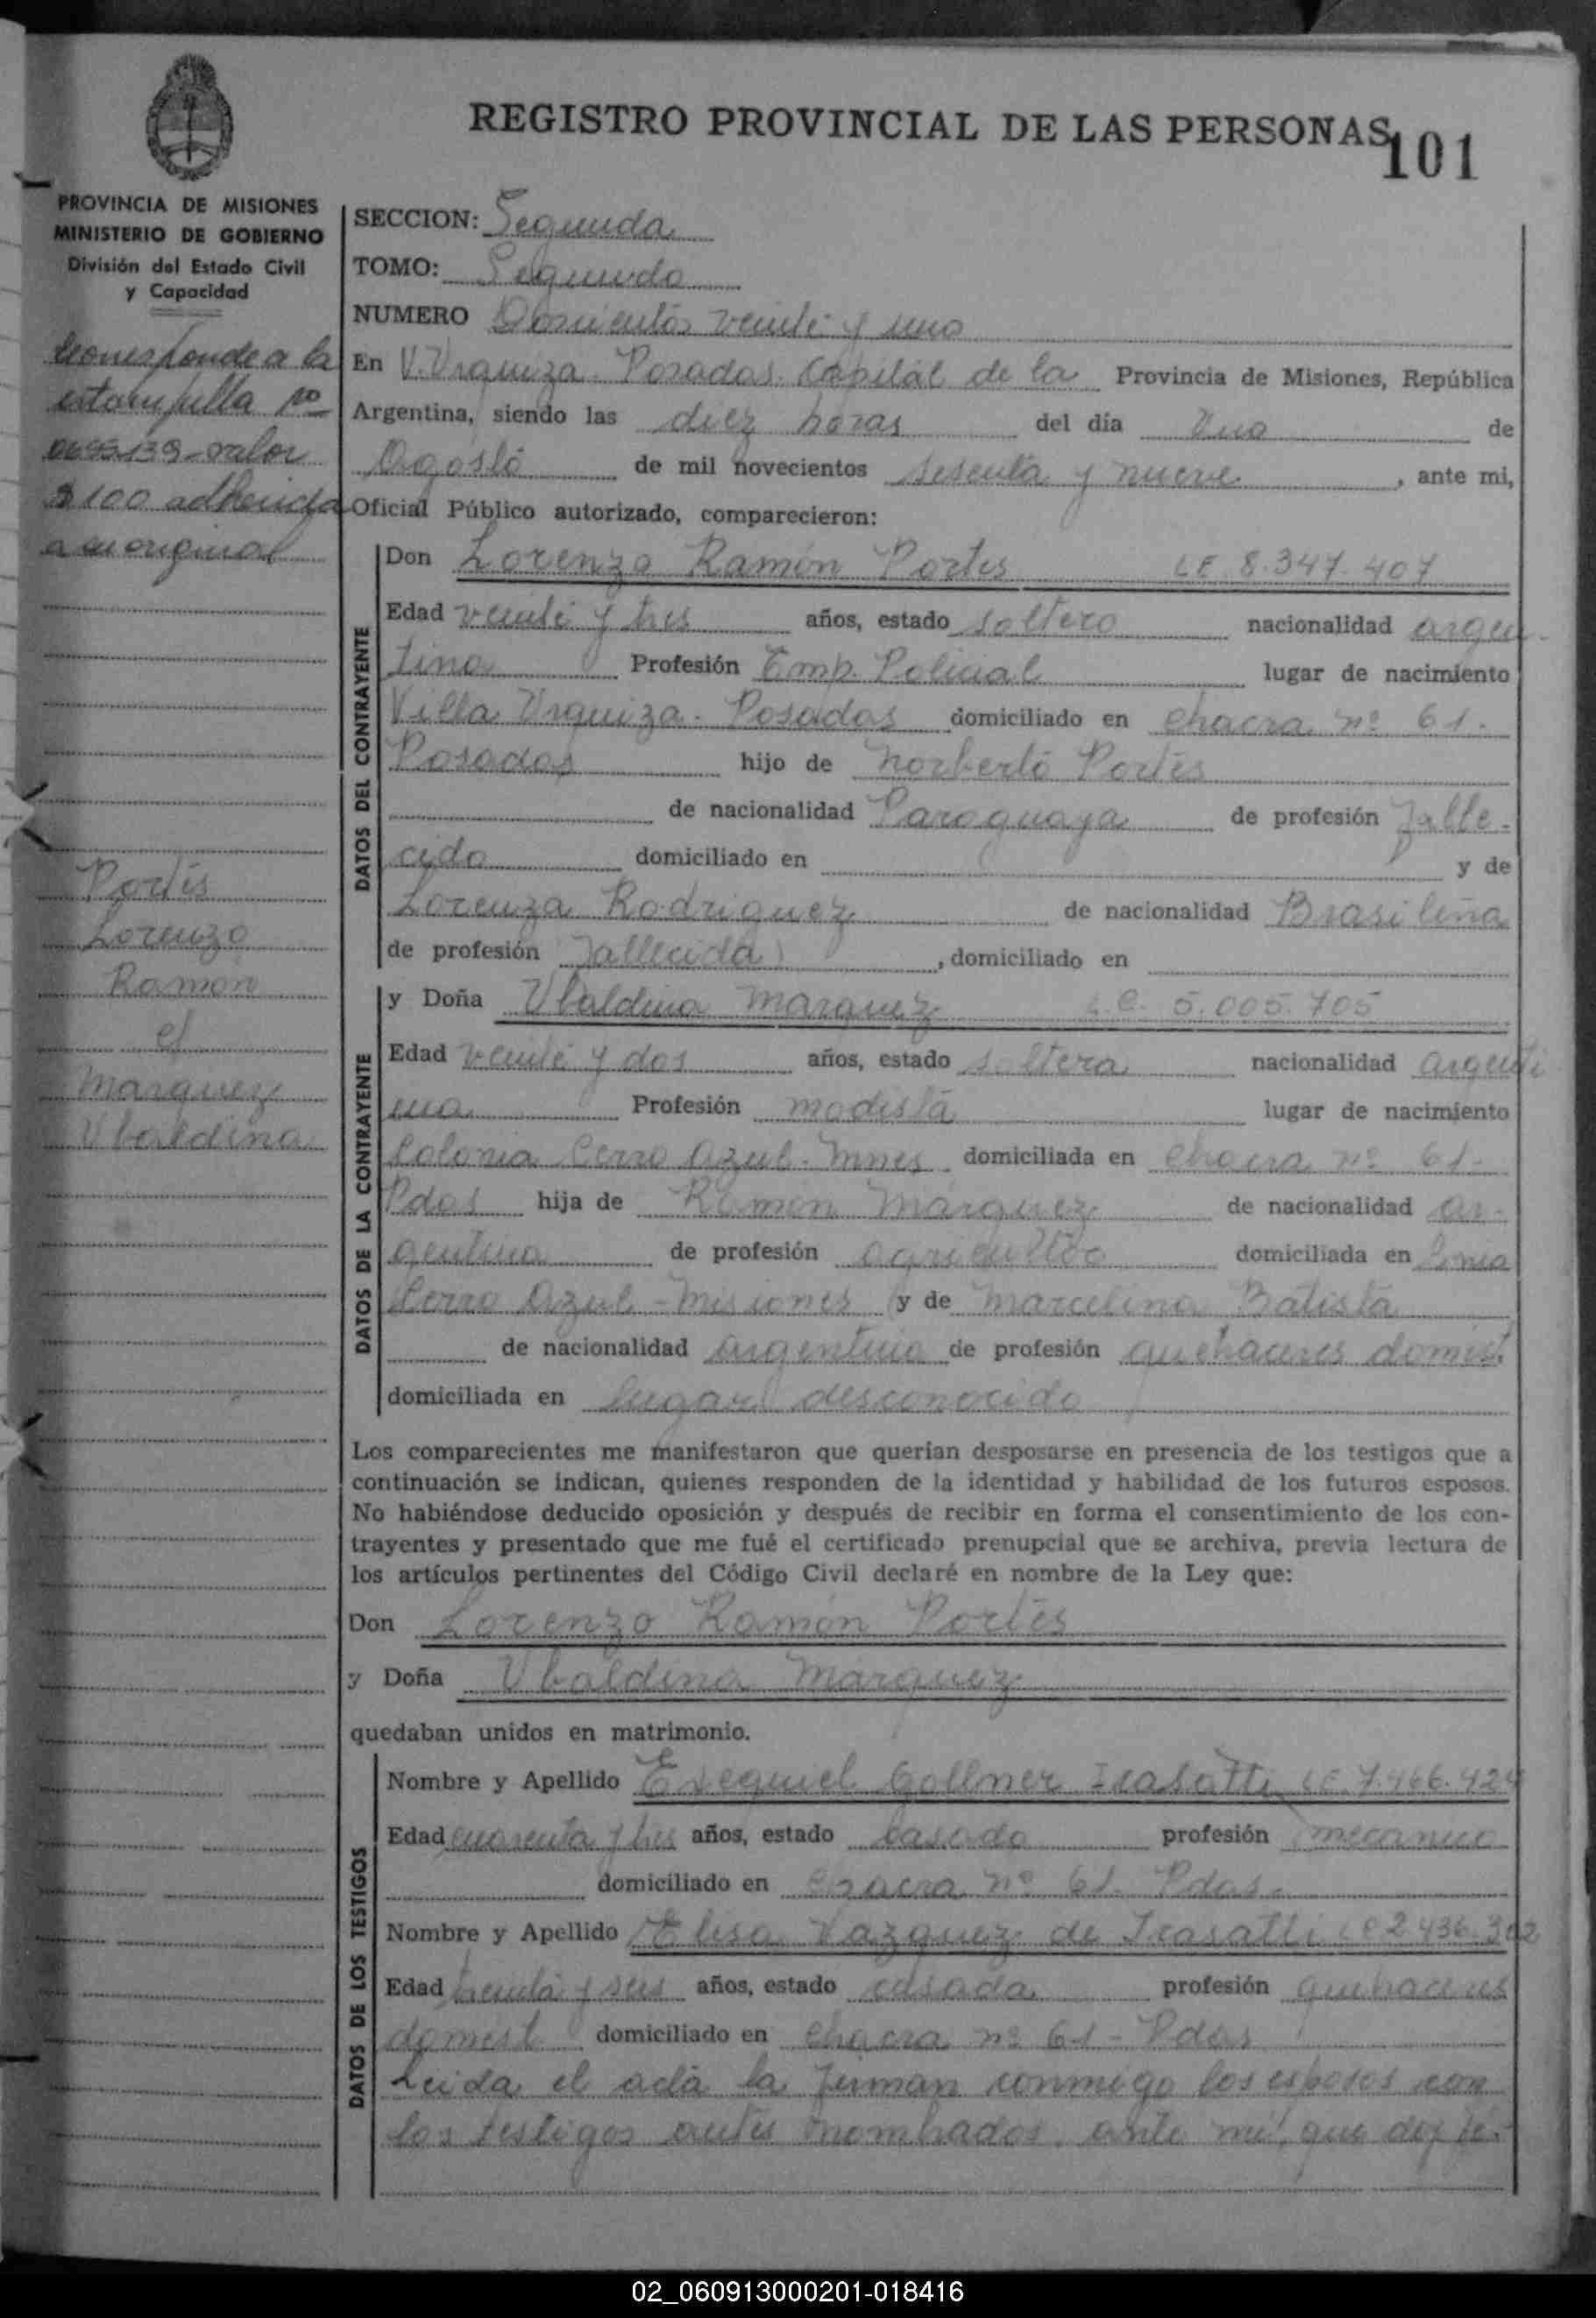 REGISTRO PROVINCIAL DE LAS PERSONAS
101
PROVINCIA DE MISIONES
MINISTERIO DE GOBIERNO
División del Estado Civil
y Capacidad
Corresponde a la
estampilla nº
valor
$ 100 adherida
a su original
Portes
Lorenzo
Ramón
c/
Marquez
Ubaldina
SECCION: Segunda
TOMO: Segundo
NUMERO Doscientos veinte y uno
En V. Urquiza. Posadas. Capital de la Provincia de Misiones, República
Argentina, siendo las diez horas del día Uno de
Agosto de mil novecientos sesenta y nueve, ante mi,
Oficial Público autorizado, comparecieron:
DATOS DEL CONTRAYENTE
Don Lorenzo Ramón Portes LE 8.347.407
Edad veinte y tres años, estado soltero nacionalidad argen-
tina Profesión Emp. Policial lugar de nacimiento
Villa Urquiza. Posadas domiciliado en chacra nº 61.
Posadas hijo de Norberto Portes
de nacionalidad Paraguaya de profesión falle-
cido domiciliado en y de
Lorenza Rodriguez de nacionalidad Brasileña
de profesión fallecida, domiciliado en
DATOS DE LA CONTRAYENTE
y Doña Ubaldina Marquez L.C. 5.005.705
Edad veinte y dos años, estado soltera nacionalidad argenti
na Profesión modista lugar de nacimiento
Colonia Cerro Azul - Mnes domiciliada en chacra nº 61.
Pdas hija de Ramón Márquez de nacionalidad ar-
gentina de profesión agricultor domiciliada en
Cerro Azul - Misiones y de Marcelina Batista
de nacionalidad argentina de profesión quehaceres domést.
domiciliada en lugar desconocido
Los comparecientes me manifestaron que querían desposarse en presencia de los testigos que a
continuación se indican, quienes responden de la identidad y habilidad de los futuros esposos.
No habiéndose deducido oposición y después de recibir en forma el consentimiento de los con-
trayentes y presentado que me fué el certificado prenupcial que se archiva, previa lectura de
los artículos pertinentes del Código Civil declaré en nombre de la Ley que:
Don Lorenzo Ramón Portes
y Doña Ubaldina Marquez
quedaban unidos en matrimonio.
DATOS DE LOS TESTIGOS
Nombre y Apellido Exequiel Gollner Trasatti LE 7.466.424
Edad cuarenta y tres años, estado casado profesión mecanico
domiciliado en chacra nº 61. Pdas.
Nombre y Apellido Elisa Vazquez de Trasatti LC 2.436.302
Edad treinta y seis años, estado casada profesión quehaceres
domest domiciliado en chacra nº 61 - Pdas
Leida el acta la firman conmigo los esposos con
los testigos antes nombrados, ante mi, que doy fé.-
02_060913000201-018416